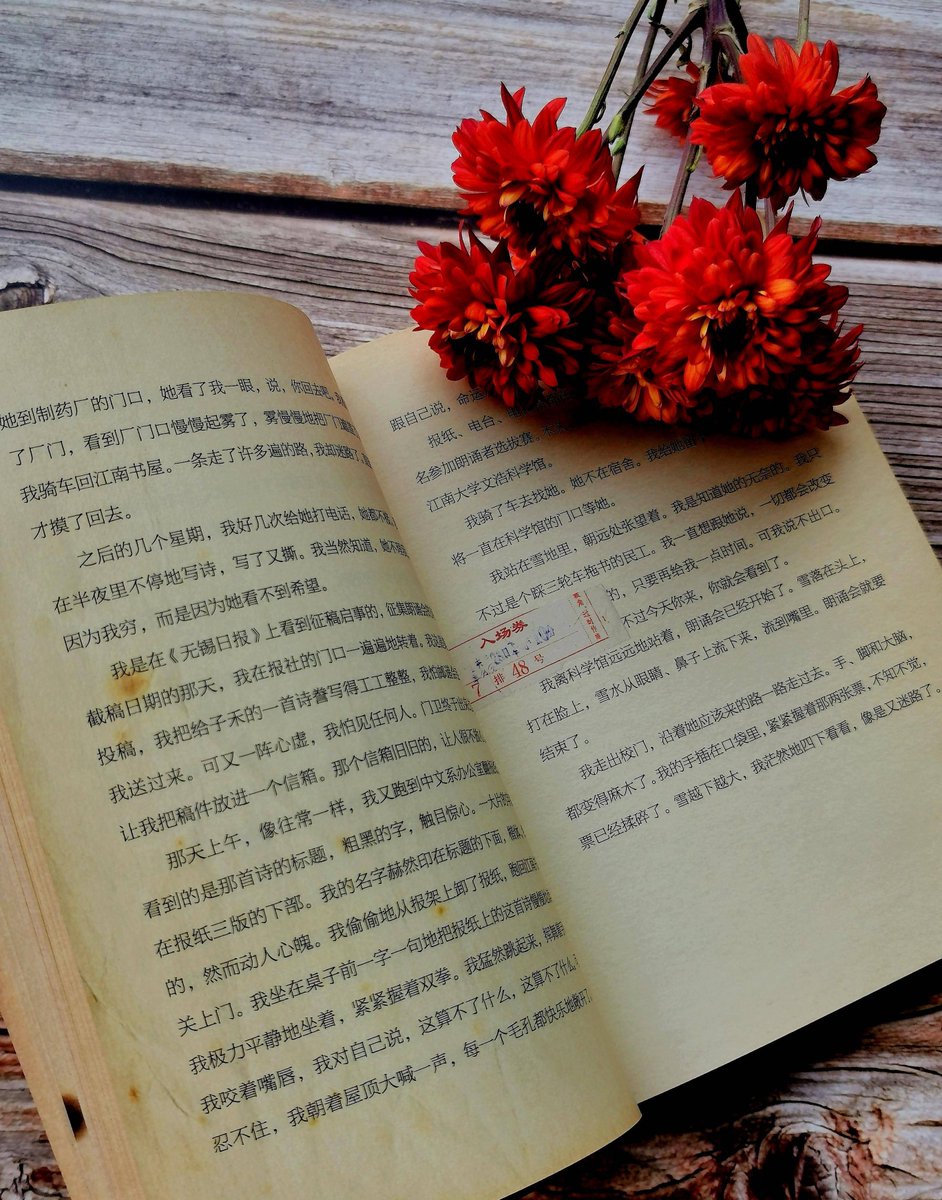 她到制药厂的门口，她看了我一眼，说，你回去吧，
了厂门，看到厂门口慢慢起雾了，雾慢慢地把厂门
我骑车回江南书屋。一条走了许多遍的路，我却迷路了，
才摸了回去。
之后的几个星期，我好几次给她打电话，她都不
在半夜里不停地写诗，写了又撕。我当然知道，她不
因为我穷，而是因为她看不到希望。
我是在《无锡日报》上看到征稿启事的，征集朗诵会的
截稿日期的那天，我在报社的门口一遍遍地转着。我
投稿，我把给子禾的一首诗誊写得工工整整，我怕
我送过来。可又一阵心虚，我怕见任何人。门卫终于
让我把稿件放进一个信箱。那个信箱旧旧的，让人很不
那天上午，像往常一样，我又跑到中文系办公室翻
看到的是那首诗的标题，粗黑的字，触目惊心。一大片的
在报纸三版的下部。我的名字赫然印在标题的下面，
的，然而动人心魄。我偷偷地从报架上卸了报纸，跑回
关上门。我坐在桌子前一字一句地把报纸上的这首诗慢慢
我极力平静地坐着，紧紧握着双拳。我猛然跳起来，挥舞
我咬着嘴唇，我对自己说，这算不了什么，这算不了什么。
忍不住，我朝着屋顶大喊一声，每一个毛孔都快乐地
跟自己说，命运
报纸、电台、
名参加朗诵者选拔赛。
江南大学文浩科学馆。
我骑了车去找她。她不在宿舍。我给她留
将一直在科学馆的门口等她。
我站在雪地里，朝远处张望着。我是知道她的无奈的。我只
不过是个踩三轮车拖书的民工。我一直想跟她说，一切都会改变
的，只要再给我一点时间。可我说不出口。
不过今天你来，你就会看到了。
我离科学馆远远地站着，朗诵会已经开始了。雪落在头上，
打在脸上，雪水从眼睛、鼻子上流下来，流到嘴里。朗诵会就要
结束了。
我走出校门，沿着她应该来的路一路走过去。手、脚和大脑，
都变得麻木了。我的手插在口袋里，紧紧握着那两张票，不知不觉，
票已经揉碎了。雪越下越大，我茫然地四下看看，像是又迷路了。
入场券
7 排 48 号